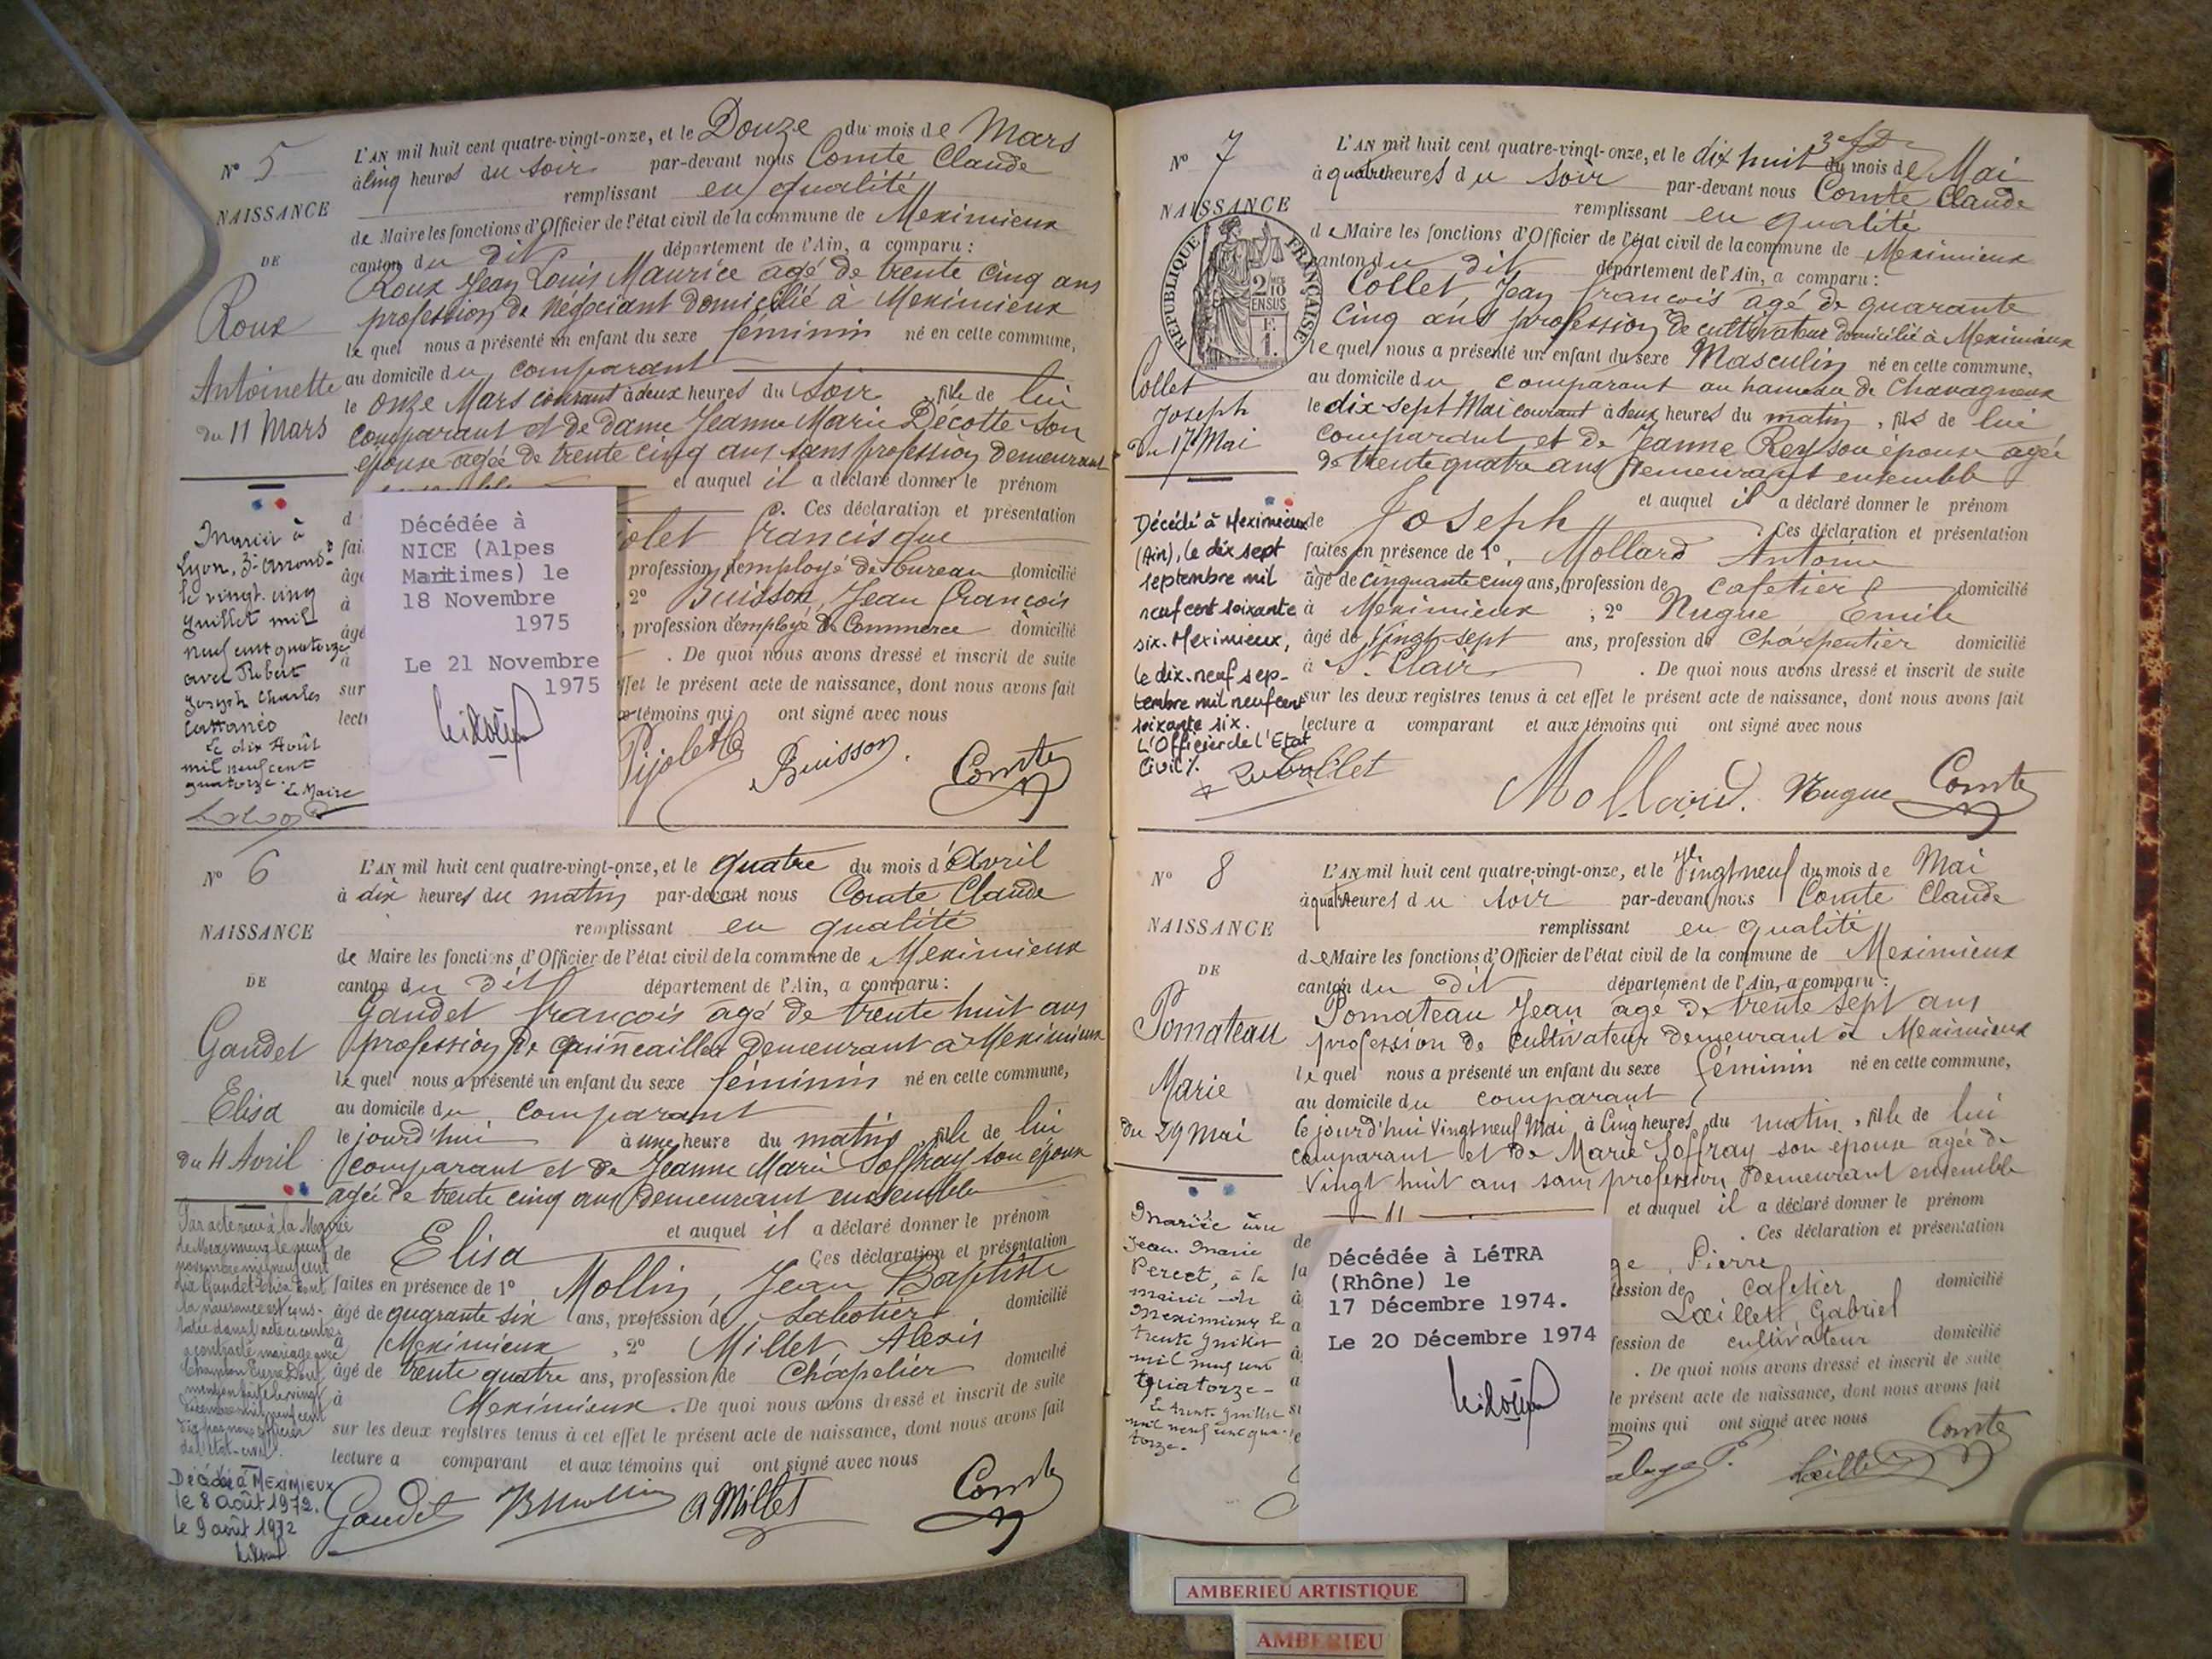 N° 5
NAISSANCE
DE
Roux
Antoinette
du 11 Mars
L'AN mil huit cent quatre-vingt-onze, et le Douze du mois de Mars
à cinq heures du soir par-devant nous Comte Claude
remplissant en qualité
de Maire les fonctions d'Officier de l'état civil de la commune de Meximieux
canton du dit département de l'Ain, a comparu :
Roux Jean Louis Maurice agé de trente cinq ans
profession de Négociant domicilié à Meximieux
le quel nous a présenté un enfant du sexe féminin né en cette commune,
au domicile du comparant
le onze Mars courant à deux heures du soir, fille de lui
comparant et de dame Jeanne Marie Decotte son
épouse agée de trente cinq ans sans profession demeurant
et auquel il a déclaré donner le prénom
d
. Ces déclaration et présentation
fai
olet francisque
âgé
profession d'employé de bureau domicilié
à
, 2° Buisson, Jean françois
âgé
, profession d'employé de Commerce domicilié
à
. De quoi nous avons dressé et inscrit de suite
sur
effet le présent acte de naissance, dont nous avons fait
lect
x témoins qui ont signé avec nous
Pijolet
Buisson
Comte
Mariée à
Lyon, 3e arrond.t
le vingt cinq
Juillet mil
neuf cent quatorze
avec Robert
Joseph Charles
Cattanéo
Le dix Août
mil neuf cent
quatorze.
Le Maire
Décédée à
NICE (Alpes
Maritimes) le
18 Novembre
1975
Le 21 Novembre
1975
N° 6
NAISSANCE
DE
Gaudet
Elisa
du 4 Avril
L'AN mil huit cent quatre-vingt-onze, et le quatre du mois d'Avril
à dix heures du matin par-devant nous Comte Claude
remplissant en qualité
de Maire les fonctions d'Officier de l'état civil de la commune de Meximieux
canton du dit département de l'Ain, a comparu :
Gaudet françois agé de trente huit ans
profession de quincailler demeurant à Meximieux
le quel nous a présenté un enfant du sexe féminin né en cette commune,
au domicile du comparant
le jourd'hui à une heure du matin, fille de lui
comparant et de Jeanne Marie Soffray son épouse
agée de trente cinq ans demeurant ensemble
et auquel il a déclaré donner le prénom
de Elisa Ces déclaration et présentation
faites en présence de 1° Mollin, Jean Baptiste
âgé de quarante six ans, profession de Sabotier domicilié
à Meximieux, 2° Millet, Alexis
âgé de trente quatre ans, profession de Chapelier domicilié
à Meximieux. De quoi nous avons dressé et inscrit de suite
sur les deux registres tenus à cet effet le présent acte de naissance, dont nous avons fait
lecture a comparant et aux témoins qui ont signé avec nous
Gaudet
A Millet
Comte
Par acte reçu à la Mairie
de Meximieux le neuf
novembre mil neuf cent
dix Gaudet Elisa dont
la naissance est cons-
tatée dans l'acte ci contre
a contracté mariage avec
Décédée à MEXIMIEUX
le 8 août 1972.
le 9 août 1972
N° 7
NAISSANCE
RÉPUBLIQUE FRANÇAISE
2/10
EN SUS
Collet
Joseph
Du 17 Mai
L'AN mil huit cent quatre-vingt-onze, et le dix huit du mois de Mai
à quatre heures du soir par-devant nous Comte Claude
remplissant en qualité
de Maire les fonctions d'Officier de l'état civil de la commune de Meximieux
canton du dit département de l'Ain, a comparu :
Collet, Jean françois agé de quarante
cinq ans, profession de cultivateur domicilié à Meximieux
le quel nous a présenté un enfant du sexe Masculin né en cette commune,
au domicile du comparant au hameau de Chavagneux
le dix sept Mai courant à deux heures du matin, fils de lui
comparant et de Jeanne Rey son épouse agée
de trente quatre ans demeurant ensemble
et auquel il a déclaré donner le prénom
de Joseph . Ces déclaration et présentation
faites en présence de 1° Mollard Antoine
âgé de cinquante cinq ans, profession de cafetier domicilié
à Meximieux, 2° Nugue Emile
âgé de vingt sept ans, profession de Charpentier domicilié
à St Clair . De quoi nous avons dressé et inscrit de suite
sur les deux registres tenus à cet effet le présent acte de naissance, dont nous avons fait
lecture a comparant et aux témoins qui ont signé avec nous
Collet
Mollard. Nugue Comte
Décédé à Meximieux
(Ain), le dix sept
septembre mil
neuf cent soixante
six. Meximieux,
le dix-neuf sep-
tembre mil neuf cent
soixante six.
L'Officier de l'Etat
Civil
N° 8
NAISSANCE
DE
Pomateau
Marie
du 29 Mai
L'AN mil huit cent quatre-vingt-onze, et le Vingt neuf du mois de Mai
à quatre heures du soir par-devant nous Comte Claude
remplissant en qualité
de Maire les fonctions d'Officier de l'état civil de la commune de Meximieux
canton du dit département de l'Ain, a comparu :
Pomateau Jean agé de trente sept ans
profession de Cultivateur demeurant à Meximieux
le quel nous a présenté un enfant du sexe féminin né en cette commune,
au domicile du comparant
le jourd'hui Vingt neuf Mai à Cinq heures du matin, fille de lui
comparant et de Marie Soffray son épouse agée de
Vingt huit ans sans profession demeurant ensemble
et auquel il a déclaré donner le prénom
de
. Ces déclaration et présentation
ge, Pierre
fession de cafetier domicilié
Lœillet Gabriel
fession de cultivateur domicilié
. De quoi nous avons dressé et inscrit de suite
le présent acte de naissance, dont nous avons fait
moins qui ont signé avec nous
Comte
Lœillet
Mariée avec
Jean Marie
Percet, à la
mairie de
Meximieux le
trente Juillet
mil neuf cent
quatorze-
Le trente Juillet
mil neuf cent qua-
torze.
Décédée à LéTRA
(Rhône) le
17 Décembre 1974.
Le 20 Décembre 1974
AMBERIEU ARTISTIQUE
AMBERIEU